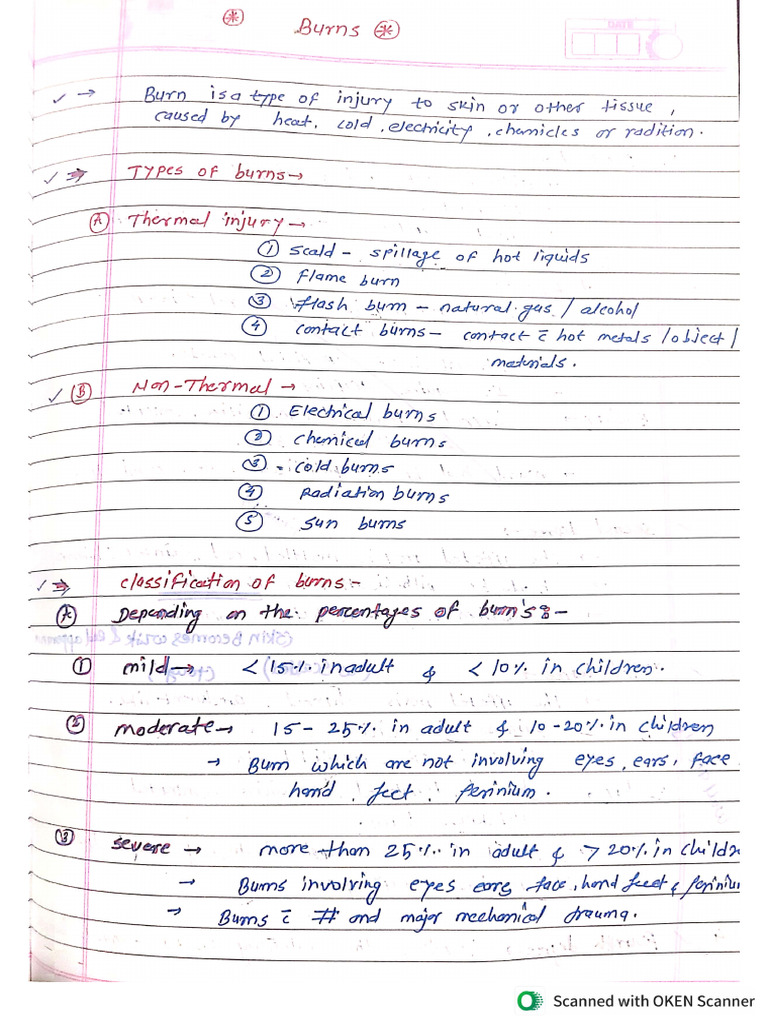 Burns
DATE
✓ → Burn is a type of injury to skin or other tissue,
caused by heat, cold, electricity, chemicles or radition.
✓ ⇒ Types of burns →
Ⓐ Thermal injury →
① scald - spillage of hot liquids
② flame burn
③ flash burn - natural gas / alcohol
④ contact burns - contact c̄ hot metals / object /
materials.
✓ Ⓑ Non-Thermal →
① Electrical burns
② chemical burns
③ cold burns
④ Radiation burns
⑤ sun burns
✓ ⇒ classification of burns :-
Ⓐ Depending on the percentages of burn's :-
① mild → <15% in adult & <10% in children.
② moderate → 15 - 25% in adult & 10 - 20% in children
→ Burn which are not involving eyes, ears, face
hand, feet, perinium.
③ severe → more than 25% in adult & >20% in childr
→ Burns involving eyes ears face, hand feet & perinium
→ Burns c̄ # and major mechanical trauma.
Scanned with OKEN Scanner